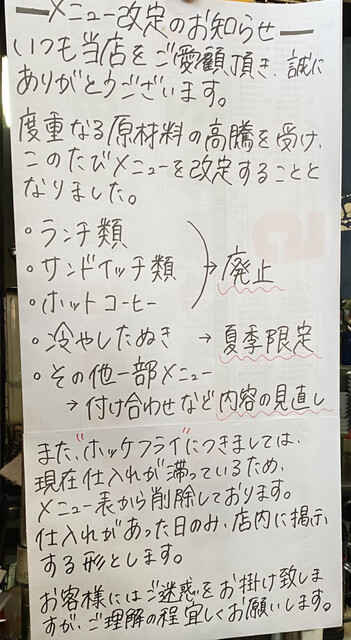 メニュー改定のお知らせ
いつも当店をご愛顧頂き、誠に
ありがとうございます。
度重なる原材料の高騰を受け、
このたびメニューを改定することと
なりました。
・ランチ類
・サンドイッチ類 → 廃止
・ホットコーヒー
・冷やしたぬき → 夏季限定
・その他一部メニュー
→ 付け合わせなど内容の見直し
また、"ホッケフライ"につきましては、
現在仕入れが滞っているため、
メニュー表から削除しております。
仕入れがあった日のみ、店内に掲示
する形とします。
お客様にはご迷惑をお掛け致しま
すが、ご理解の程宜しくお願いします。